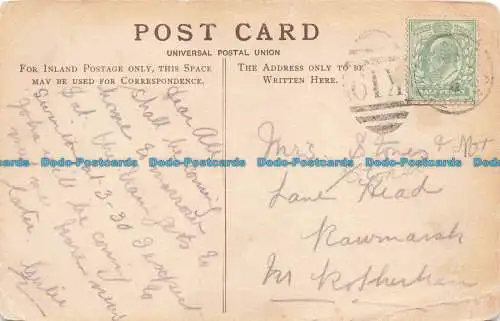 POST CARD
UNIVERSAL POSTAL UNION
FOR INLAND POSTAGE ONLY, THIS SPACE
MAY BE USED FOR CORRESPONDENCE.
THE ADDRESS ONLY TO BE
WRITTEN HERE.
HALF PENNY
Dear All
Shall be coming
home tomorrow
but the train gets to
Swinton at 3.30 I expect
John will be coming to
meet me
later.
Mrs Stones
Lane Head
Rawmarsh
Nr Rotherham
Dodo-Postcards Dodo-Postcards Dodo-Postcards Dodo-Postcards
Dodo-Postcards Dodo-Postcards Dodo-Postcards Dodo-Postcards